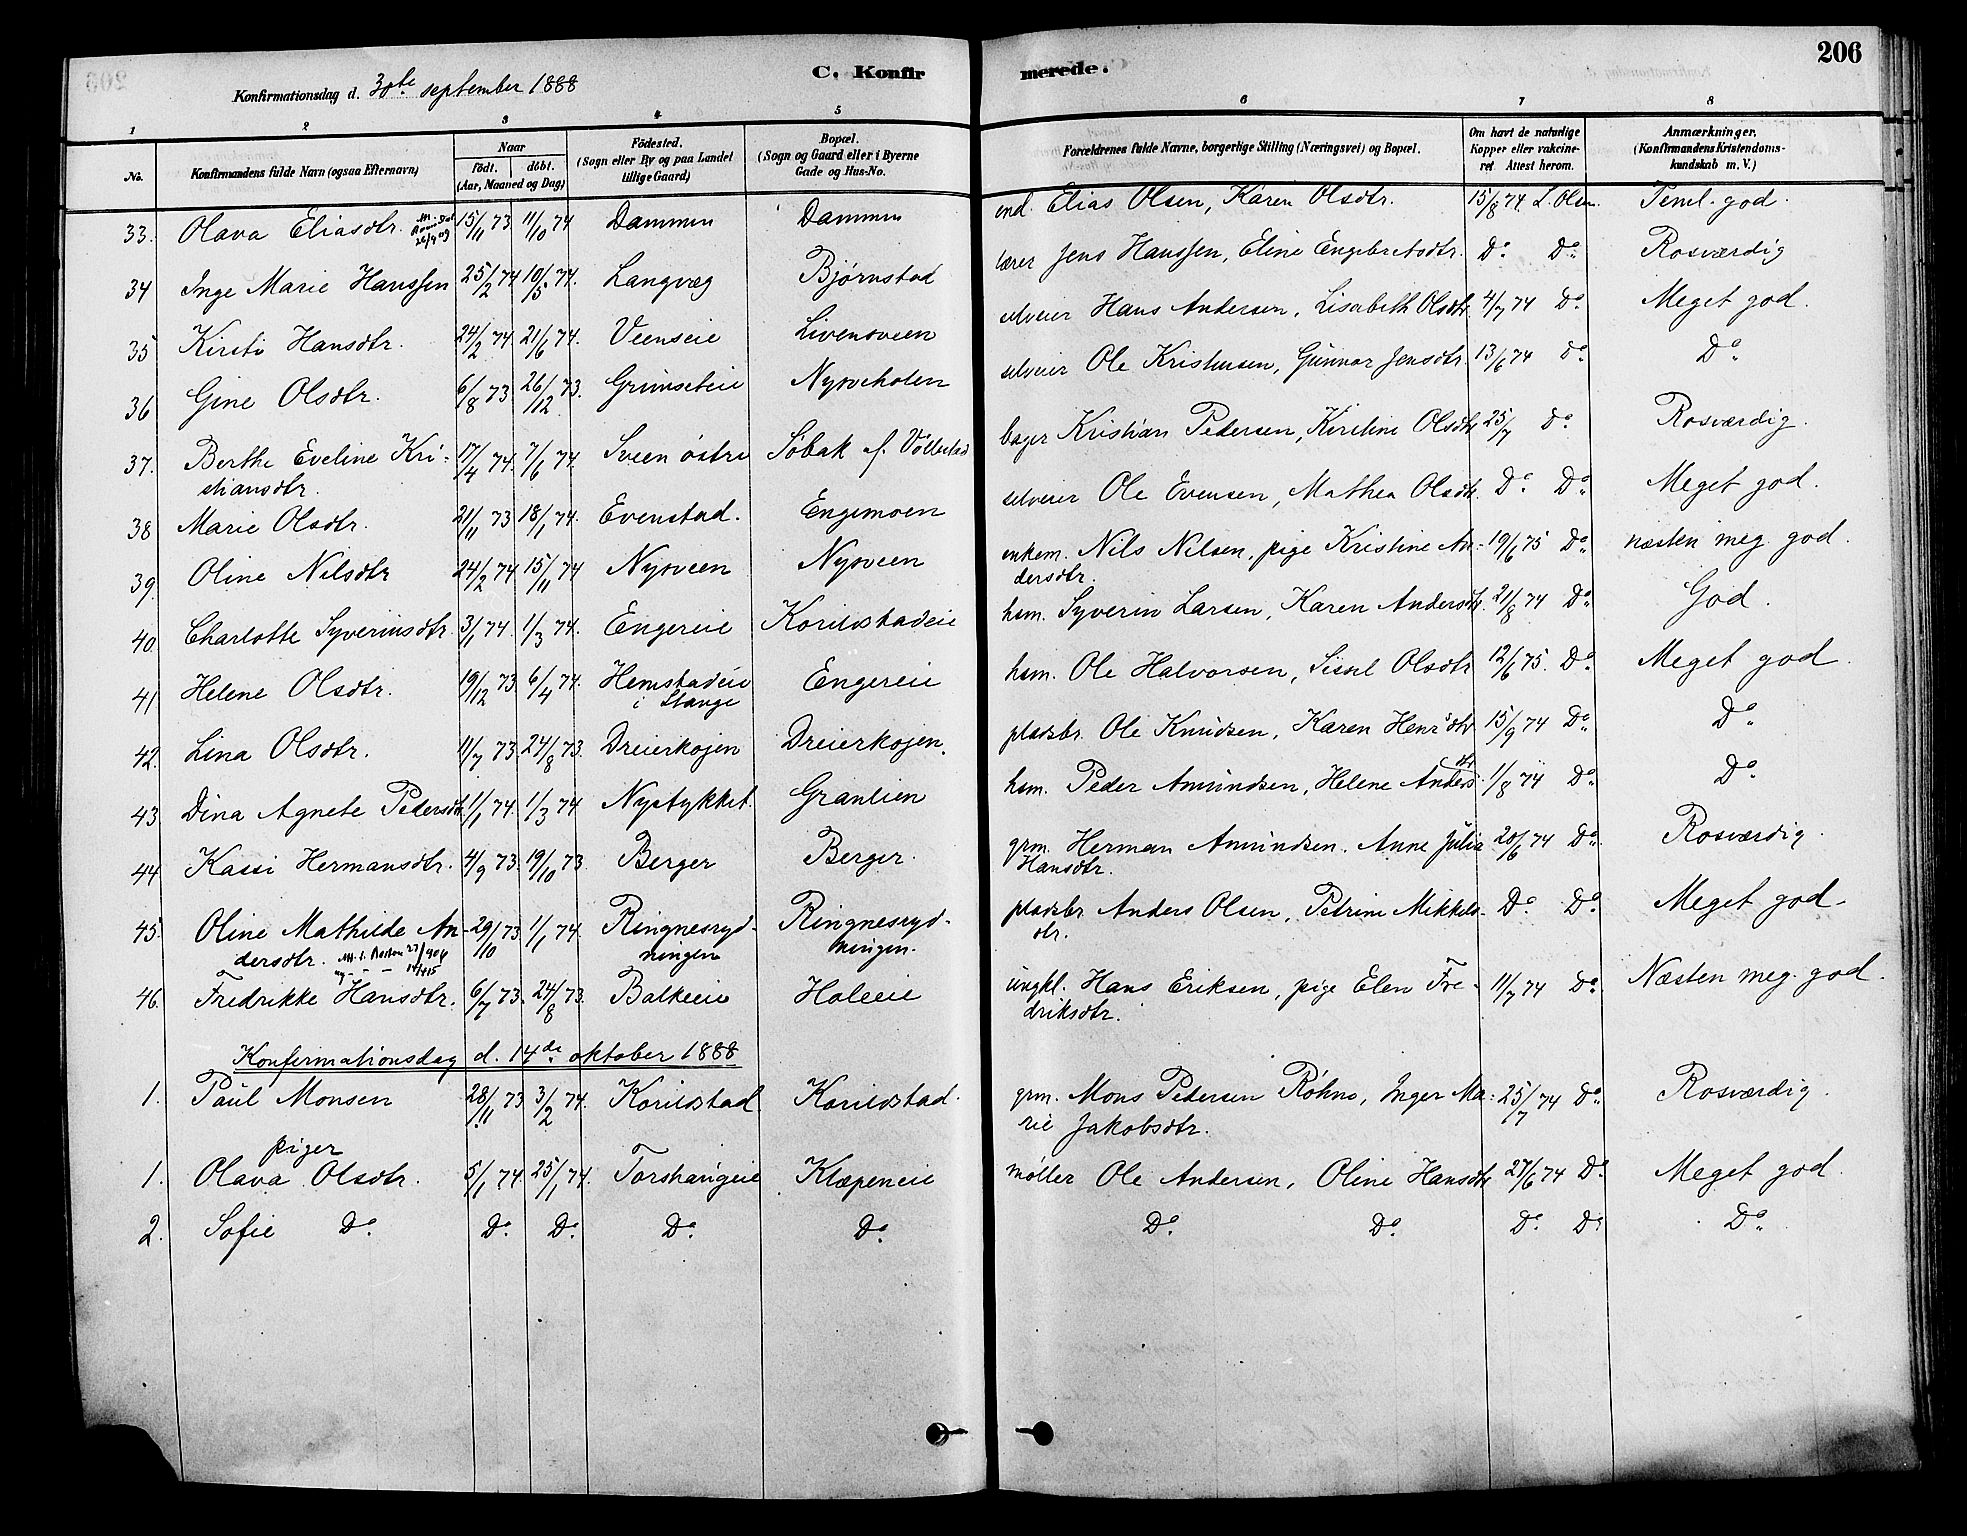 206
C. Konfir merede.
Konfirmationsdag d. 30te september 1888
1 2 3 4 5 6 7 8
No. Konfirmandens fulde Navn (ogsaa Efternavn) Naar födt. döbt. (Aar, Maaned og Dag) Födested. (Sogn eller By og paa Landet tillige Gaard) Bopæl. (Sogn og Gaard eller i Byerne Gade og Hus-No. Forældrenes fulde Navne, borgerlige Stilling (Næringsvei) og Bopæl. Om havt de naturlige Kopper eller vakcineret Attest herom. Anmærkninger. (Konfirmandens Kristendomskundskab m. V.)
33. Olava Eliasdtr. 26/9 09 15/11 73 11/10 74 Dammen Dammen end. Elias Olsen, Karen Olsdtr. 15/8 74 L. Olsen Teml. god.
34 Inge Marie Hanssen 25/2 74 10/5 74. Langvæg Bjørnstad lærer Jens Hanssen, Eline Engebretsdtr. Do Do Rosværdig
35 Kirsti Hansdtr. 24/2 74. 21/6 74. Veenseie Livensveen selveier Hans Andersen, Lisabeth Olsdtr. 4/7 74 Do Meget god.
36 Gine Olsdtr. 6/8 73 26/12 73. Grimseteie Nysveholen selveier Ole Kristensen, Gunnor Jensdtr. 13/6 74 Do Do
37. Berthe Eveline Kri-
stiansdtr. 17/4 74. 7/6 74. Sveen östre Søbak af. Völlestad bager Kristian Pedersen, Kirstine Olsdtr 25/7 Do Rosværdig.
38 Marie Olsdtr. 21/11 73 18/1 74. Evenstad. Engemoen selveier Ole Evensen, Mathea Olsdtr. Do Do Meget god.
39. Oline Nilsdtr 24/2 74 15/11 74 Nysveen Nysveen enkem. Nils Nilsen, pige Kristine An-
dersdtr. 19/6 75 Do næsten meg. god.
40. Charlotte Syverinsdtr. 3/1 74. 1/3 74. Engereie Korildstadeie hsm. Syverin Larsen, Karen Andersdtr. 21/8 74 Do God.
41 Helene Olsdtr. 19/12 73. 6/4 74. Hemstadeie
i Stange Engereie hsm. Ole Halvorsen, Sissel Olsdtr 12/6 75. Do Meget god.
42. Lina Olsdtr. 11/7 73. 24/8 73. Dreierkojen Dreierkojen. pladsbr. Ole Knudsen, Karen Henrsdtr 15/9 74 Do Do
43 Dina Agnete Pedersdtr. 1/1 74. 1/3 74 Nystykket. Granlien hsm. Peder Amundsen, Helene Andersdtr. 1/8 74 Do Do
44 Kassi Hermansdtr. 4/9 73. 19/10 73 Berger Berger. grm. Herman Amundsen. Anne Julia
Hansdtr. 20/6 74 Do Rosværdig.
45. Oline Mathilde An-
dersdtr. 29/10 73 1/1 74. Ringnesryd-
ningen Ringnesryd-
ningen. pladsbr Anders Olsen, Petrine Mikkels-
dtr. Do Do Meget god.
46. Fredrikke Hansdtr. 6/7 73. 24/8 73. Balkeeie Holeeie ungkl. Hans Eriksen, pige Elen Fre-
driksdtr. 11/7 74 Do Næsten meg. god.
Konfirmationsdag d. 14de oktober 1888
1. Paul Monsen 28/11 73 3/2 74. Korildstad Korildstad. grm. Mons Pedersen Röhne, Inger Ma-
rie Jakobsdtr. 25/7 74 Do Rosværdig.
piger
1. Olava Olsdtr. 5/1 74. 25/1 74. Torshaugeie Klæpeneie møller Ole Andersen, Oline Hansdtr 27/6 74 Do Meget god.
2. Sofie Do Do Do Do Do Do Do Do Do Do